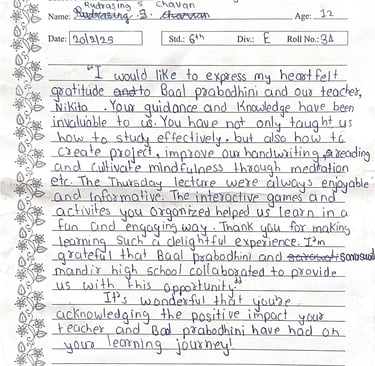 Rudrasing S Chavan
Name: Rudrasing S. Chavan Age: 12
Date: 20/2/25 Std.: 6th Div.: E Roll No.: 34
"I would like to express my heart felt
gratitude and to Baal prabodhini and our teacher,
Nikita. Your guidance and Knowledge have been
invaluable to us. You have not only taught us
how to study effectively, but also how to
create project, improve our handwriting, reading
and cultivate mindfulness through meditation
etc. The Thursday lecture were always enjoyable
and informative. The interactive games and
activites you organized helped us learn in a
fun and engaging way. Thank you for making
learning such a delightful experience. I'm
grateful that Baal prabodhini and
mandir high school collaborated to provide
us with this opportunity."
It's wonderful that you're
acknowledging the positive impact your
teacher and Baal prabodhini have had on
your learning journey!